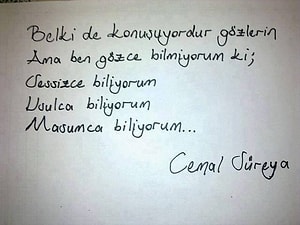 Belki de konuşuyordur gözlerin
Ama ben gözce bilmiyorum ki;
Sessizce biliyorum
Usulca biliyorum
Masumca biliyorum...
Cemal Süreya